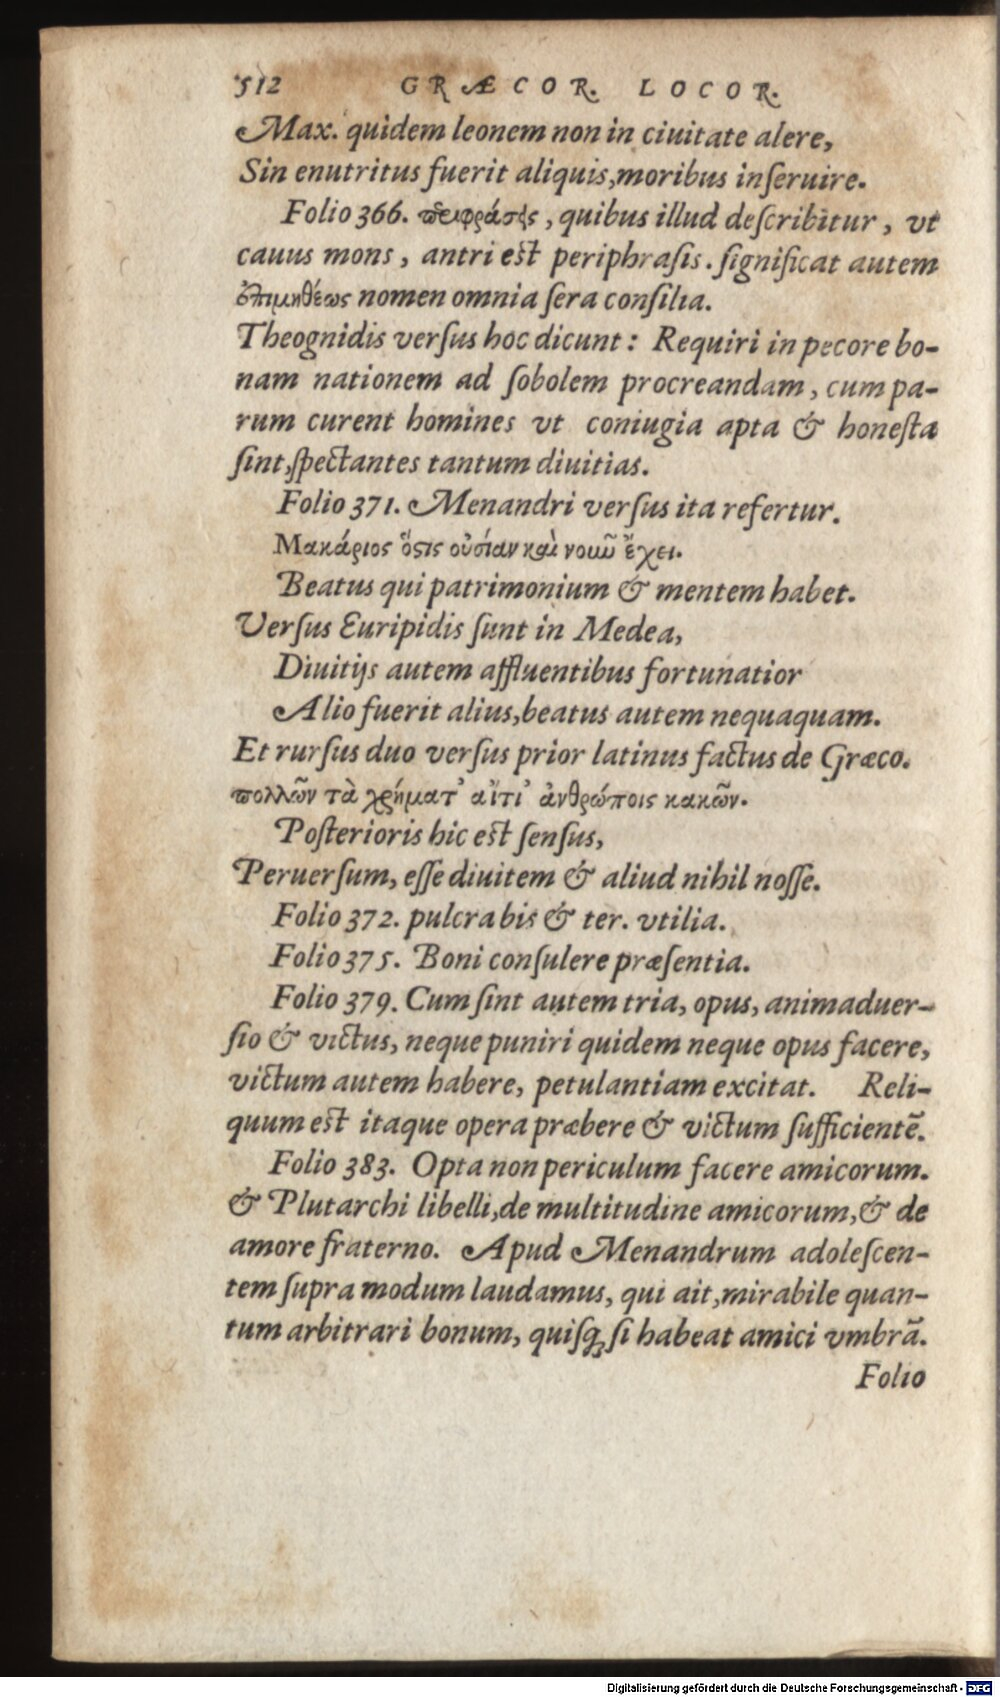 512 GRÆCOR. LOCOR.
Max. quidem leonem non in ciuitate alere,
Sin enutritus fuerit aliquis, moribus inſeruire.
Folio 366. περιφράσεις, quibus illud deſcribitur, vt
cauus mons, antri eſt periphraſis. ſignificat autem
ἐπιμηθέως nomen omnia ſera conſilia.
Theognidis verſus hoc dicunt: Requiri in pecore bo-
nam nationem ad ſobolem procreandam, cum pa-
rum curent homines vt coniugia apta & honeſta
ſint, ſpectantes tantum diuitias.
Folio 371. Menandri verſus ita refertur.
Μακάριος ὅστις οὐσίαν καὶ νοῦν ἔχει.
Beatus qui patrimonium & mentem habet.
Verſus Euripidis ſunt in Medea,
Diuitijs autem affluentibus fortunatior
Alio fuerit alius, beatus autem nequaquam.
Et rurſus duo verſus prior latinus factus de Græco.
πολλῶν τὰ χρήματ' αἴτι' ἀνθρώποις κακῶν.
Poſterioris hic eſt ſenſus,
Peruerſum, eſſe diuitem & aliud nihil noſſe.
Folio 372. pulcra bis & ter. vtilia.
Folio 375. Boni conſulere præſentia.
Folio 379. Cum ſint autem tria, opus, animaduer-
ſio & victus, neque puniri quidem neque opus facere,
victum autem habere, petulantiam excitat. Reli-
quum eſt itaque opera præbere & victum ſufficientē.
Folio 383. Opta non periculum facere amicorum.
& Plutarchi libelli, de multitudine amicorum, & de
amore fraterno. Apud Menandrum adoleſcen-
tem ſupra modum laudamus, qui ait, mirabile quan-
tum arbitrari bonum, quiſq; ſi habeat amici vmbrā.
Folio
Digitalisierung gefördert durch die Deutsche Forschungsgemeinschaft - DFG